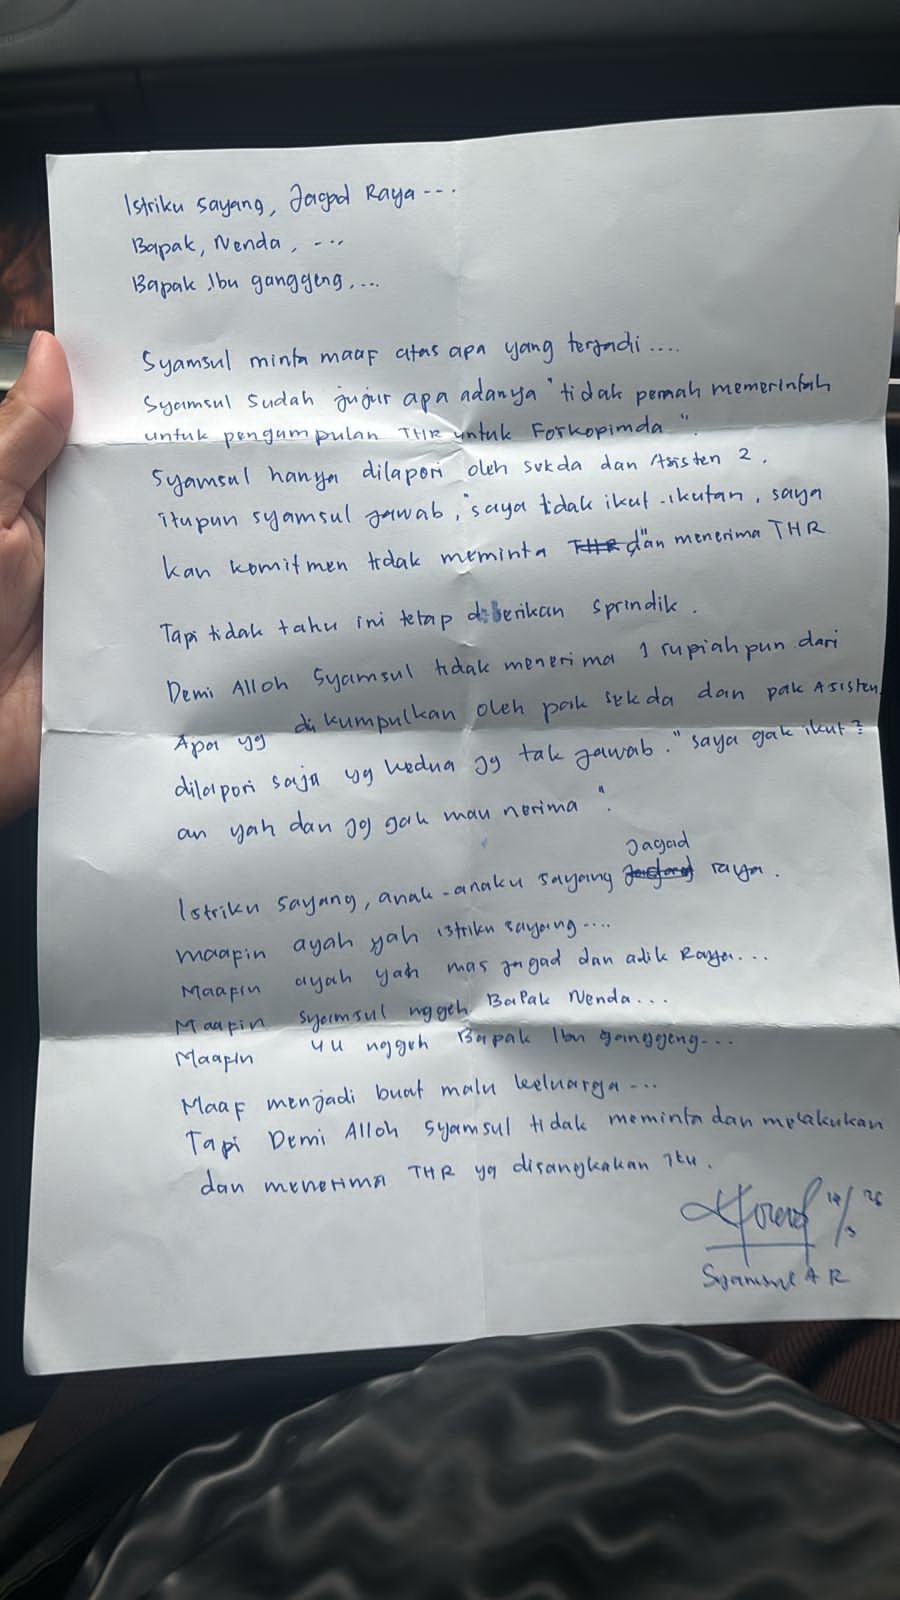 Istriku sayang, Jagad Raya ---.
Bapak, Nenda, ---.
Bapak Ibu ganggeng, ...
Syamsul minta maaf atas apa yang terjadi ....
Syamsul sudah jujur apa adanya "tidak pernah memerintah
untuk pengumpulan THR untuk Forkopimda".
Syamsul hanya dilapori oleh sekda dan Asisten 2.
itupun syamsul jawab, "saya tidak ikut-ikutan, saya
kan komitmen tidak meminta THR dan" menerima THR
Tapi tidak tahu ini tetap diberikan sprindik.
Demi Alloh Syamsul tidak menerima 1 rupiah pun dari
Apa yg dikumpulkan oleh pak sekda dan pak Asisten
dilapori saja yg kedua jg tak jawab. "saya gak ikut²
an yah dan jg gak mau nerima".
Jagad
Istriku sayang, anak-anaku sayang raya.
maafin ayah yah istriku sayang....
Maafin ayah yah mas Jagad dan adik Raya...
Maafin syamsul nggeh Bapak Nenda...
Maafin nggeh Bapak Ibu ganggeng...
Maaf menjadi buat malu keluarga ---
Tapi Demi Alloh Syamsul tidak meminta dan melakukan
dan menerima THR yg disangkakan itu.
Syamsul A R